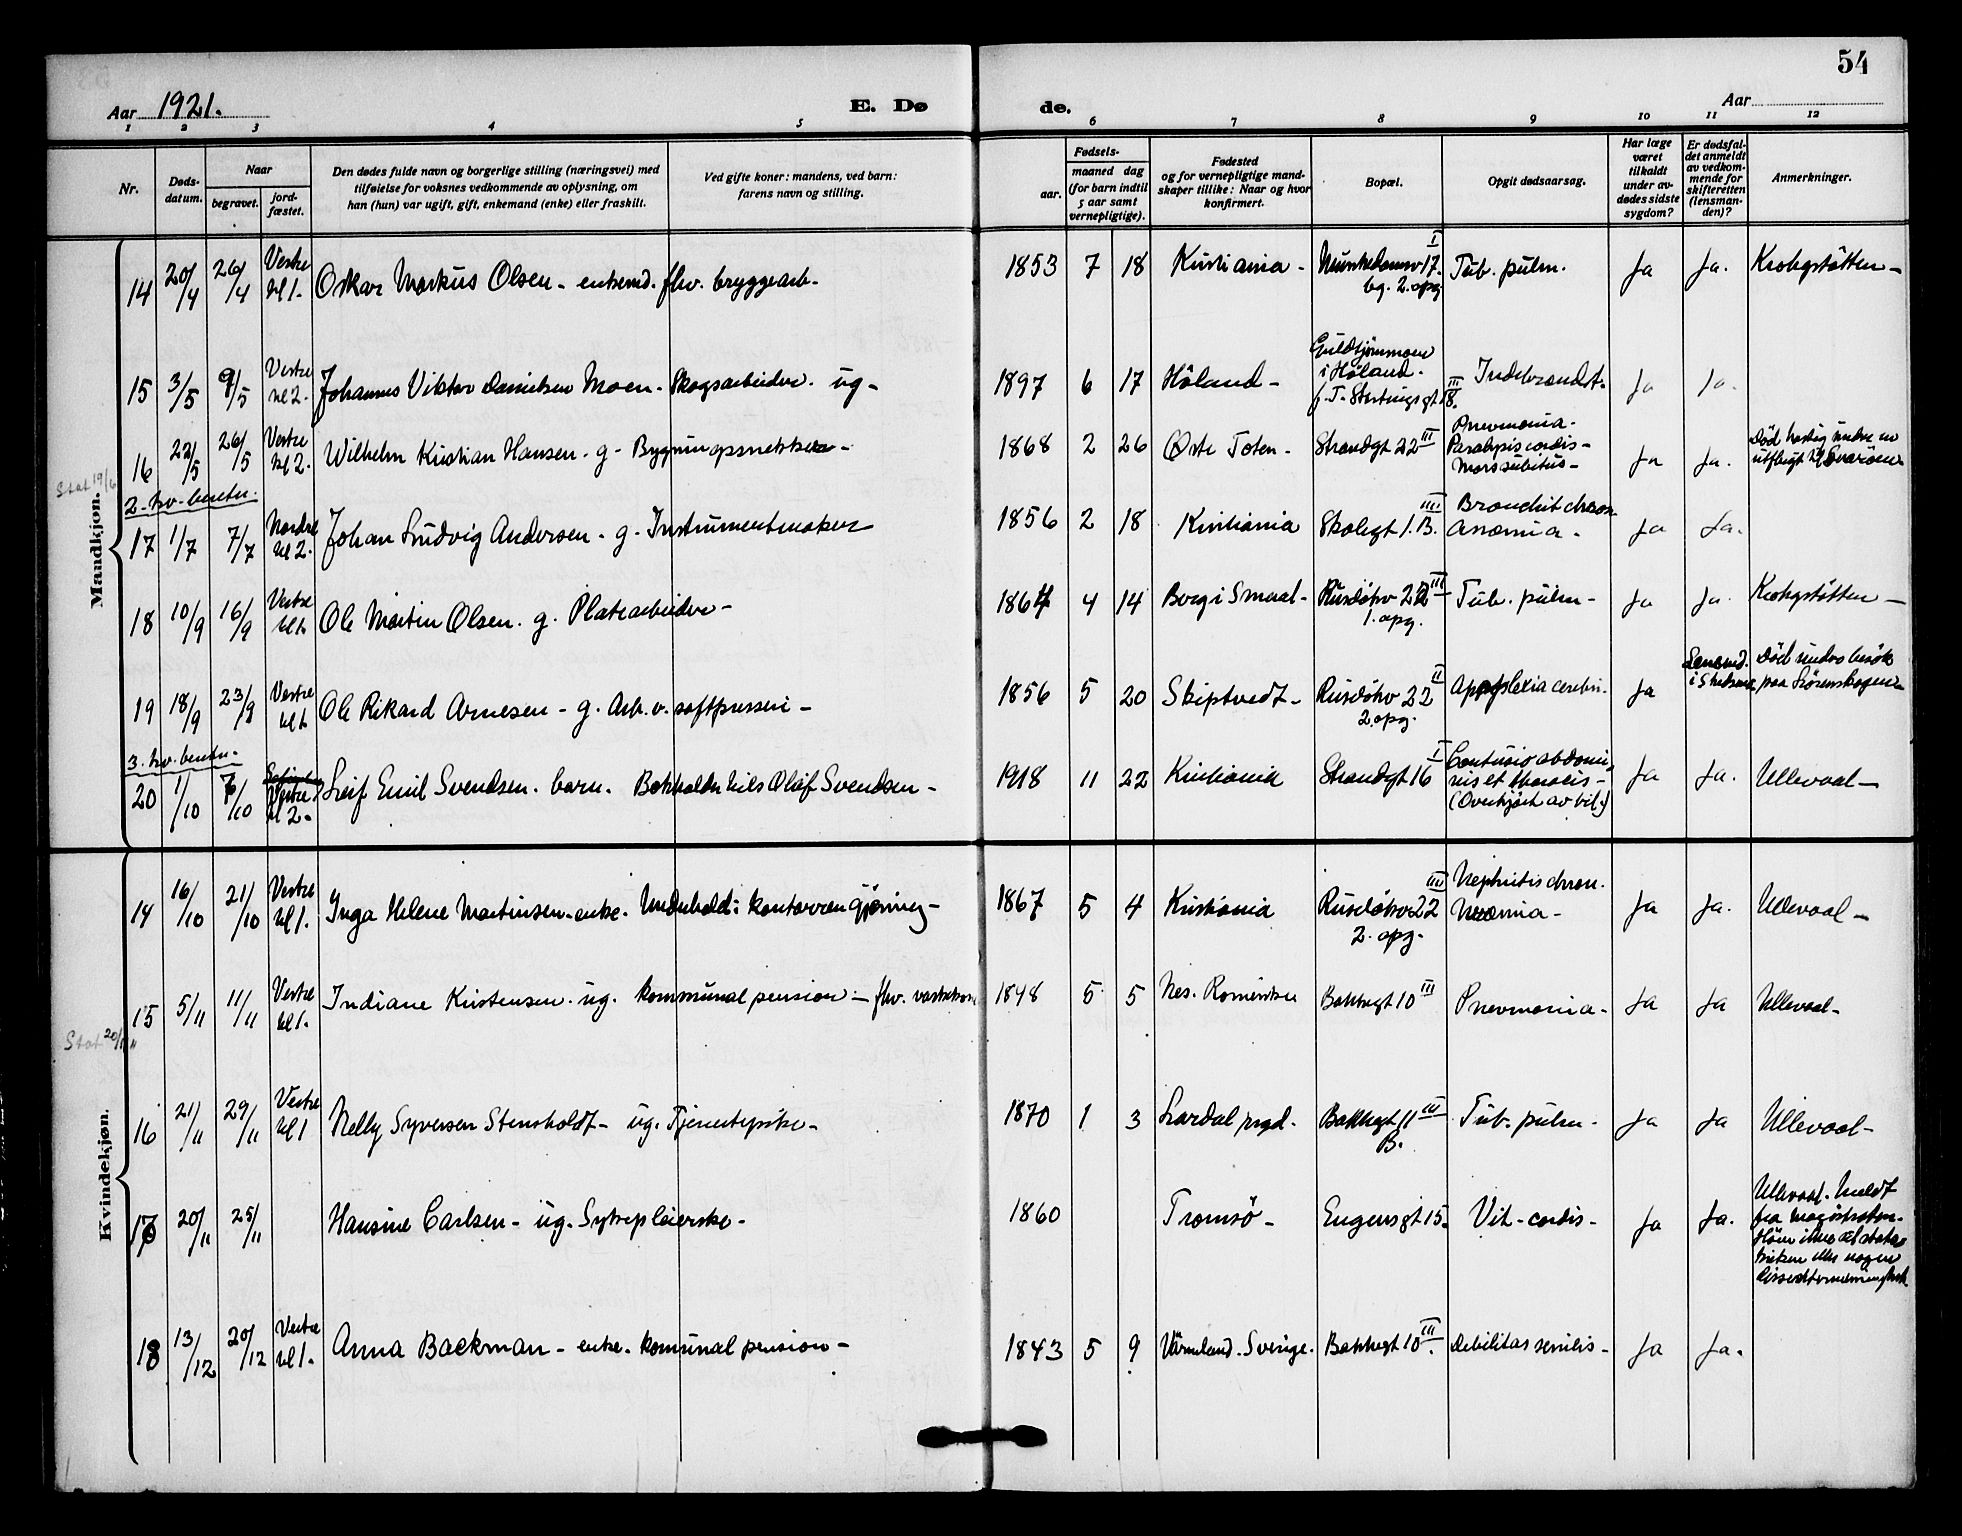 54
Aar 1921.
E. Dø
de.
Aar
1 2 3 4 5 6 7 8 9 10 11 12
Nr.
Døds-
datum.
Naar
begravet.
jord-
fæstet.
Den dødes fulde navn og borgerlige stilling (næringsvei) med
tilføielse for voksnes vedkommende av oplysning, om
han (hun) var ugift, gift, enkemand (enke) eller fraskilt.
Ved gifte koner: mandens, ved barn:
farens navn og stilling.
Fødsels-
aar.
maaned dag
(for barn indtil
5 aar samt
vernepligtige).
Fødested
og for vernepligtige mand-
skaper tillike: Naar og hvor
konfirmert.
Bopæl.
Opgit dødsaarsag.
Har læge
været
tilkaldt
under av-
dødes sidste
sygdom?
Er dødsfal-
det anmeldt
av vedkom-
mende for
skifteretten
(lensman-
den)?
Anmerkninger.
Mandkjøn.
14 20/4 26/4 Vestre kl 1. Oskar Markus Olsen - enkemd. fhv. bryggearb. 1853 7 18 Kristiania - Munkedamsv 17 I bg. 2. opg Tub. pulm. Ja Ja. Krohgstøtten -
15 3/5 9/5 Vestre kl 2. Johannes Viktor Danielsen Moen - Skogsarbeider. ug - 1897 6 17 Høland - i Høland. Ja Ja.
Stat 19/6
16 22/5 26/5 Vestre kl 2. Wilhelm Kristian Hansen - g - Bygningssnekker - 1868 2 26 Østre Toten - Strandgt 22 III Pneumonia. Paralysis cordis - Mors subitus - Ja Ja. Død hastig under en utflugt til
2. kv. bentn.
17 1/7 7/7 Nordre kl 2. Johan Ludvig Andersen - g - Instrumentmaker 1856 2 18 Kristiania Skolegt 1. B. III Bronchit chron Anæmia - Ja Ja.
18 10/9 16/9 Vestre kl 1. Ole Martin Olsen. g. Platearbeider - 1864 4 14 Berg i Smaal - Ruseløkv 22 III 1. opg. Tub. pulm - Ja Ja. Krohgstøtten -
19 18/9 23/9 Vestre kl 1. Ole Rikard Arnesen - g. Arb. v. saftpresseri - 1856 5 20 Skiptvedt - Ruseløkv 22 II 2. opg. Apoplexia cerebri. Ja Lensmd. i Skedsmo Død under besøk paa Lørenskogen
3. kv. bentn.
20 1/10 7/10 Vestre kl 2. Leif Emil Svendsen. barn. Bokholder Nils Olaf Svendsen - 1918 11 22 Kristiania Strandgt 16 I Contusio abdomi nis et thoracis - (Overkjørt av bil.) Ja Ja. Ullevaal -
Kvindekjøn.
14 16/10 21/10 Vestre kl 1. Inga Helene Martinsen - enke. Underhold: kontorrengjøring - 1867 5 4 Kristiania Ruseløkv 22 III 2. opg. Nephritis chron. Uræmia - Ja Ja. Ullevaal -
15 5/11 11/11 Vestre kl 1. Indiane Kristensen. ug. kommunal pension - fhv. vaskekone 1848 5 5 Nes. Romerike Bakkegt 10 III Pneumonia - Ja Ja Ullevaal -
Stat 20/11
16 21/11 29/11 Vestre kl 1 Nelly Syversen Stensholdt - ug. Tjenestepike - 1870 1 3 Lardal prgd. Bakkegt 11 III B. Tub. pulm - Ja Ja Ullevaal -
17 20/11 25/11 Hansine Carlsen - ug. Sykepleierske - 1860 Tromsø - Eugensgt 15. Vit. cordis - Ja Ja. Ullevaal. Meldt fra magistraten.
18 13/12 20/12 Vestre kl 1. Anna Backman - enke. komunal pension - 1843 5 9 Värmland. Sverige. Bakkegt 10 III. debilitas senilis - Ja Ja.